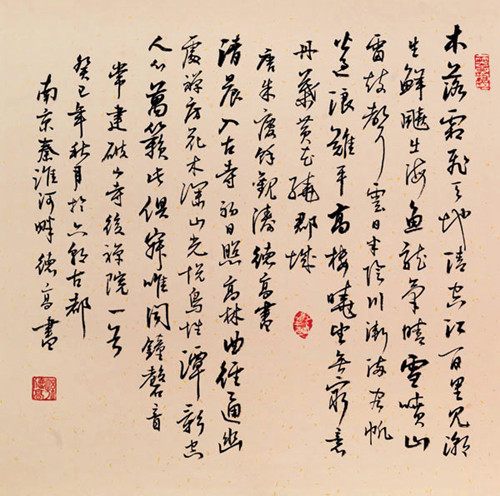 木落霜飛天地清空江百里見潮
生鮮飈出海魚龍氣晴雪噴山
雷鼓聲雲日半陰川漸滿客帆
皆過浪難平高樓曉望無窮意
丹葉黃花繞郡城
唐朱慶餘觀濤德高書
清晨入古寺初日照高林曲徑通幽
處禪房花木深山光悅鳥性潭影空
人心萬籟此俱寂唯聞鐘磬音
常建破山寺後禪院一首
癸巳年秋月於六朝古都
南京秦淮河畔德高書